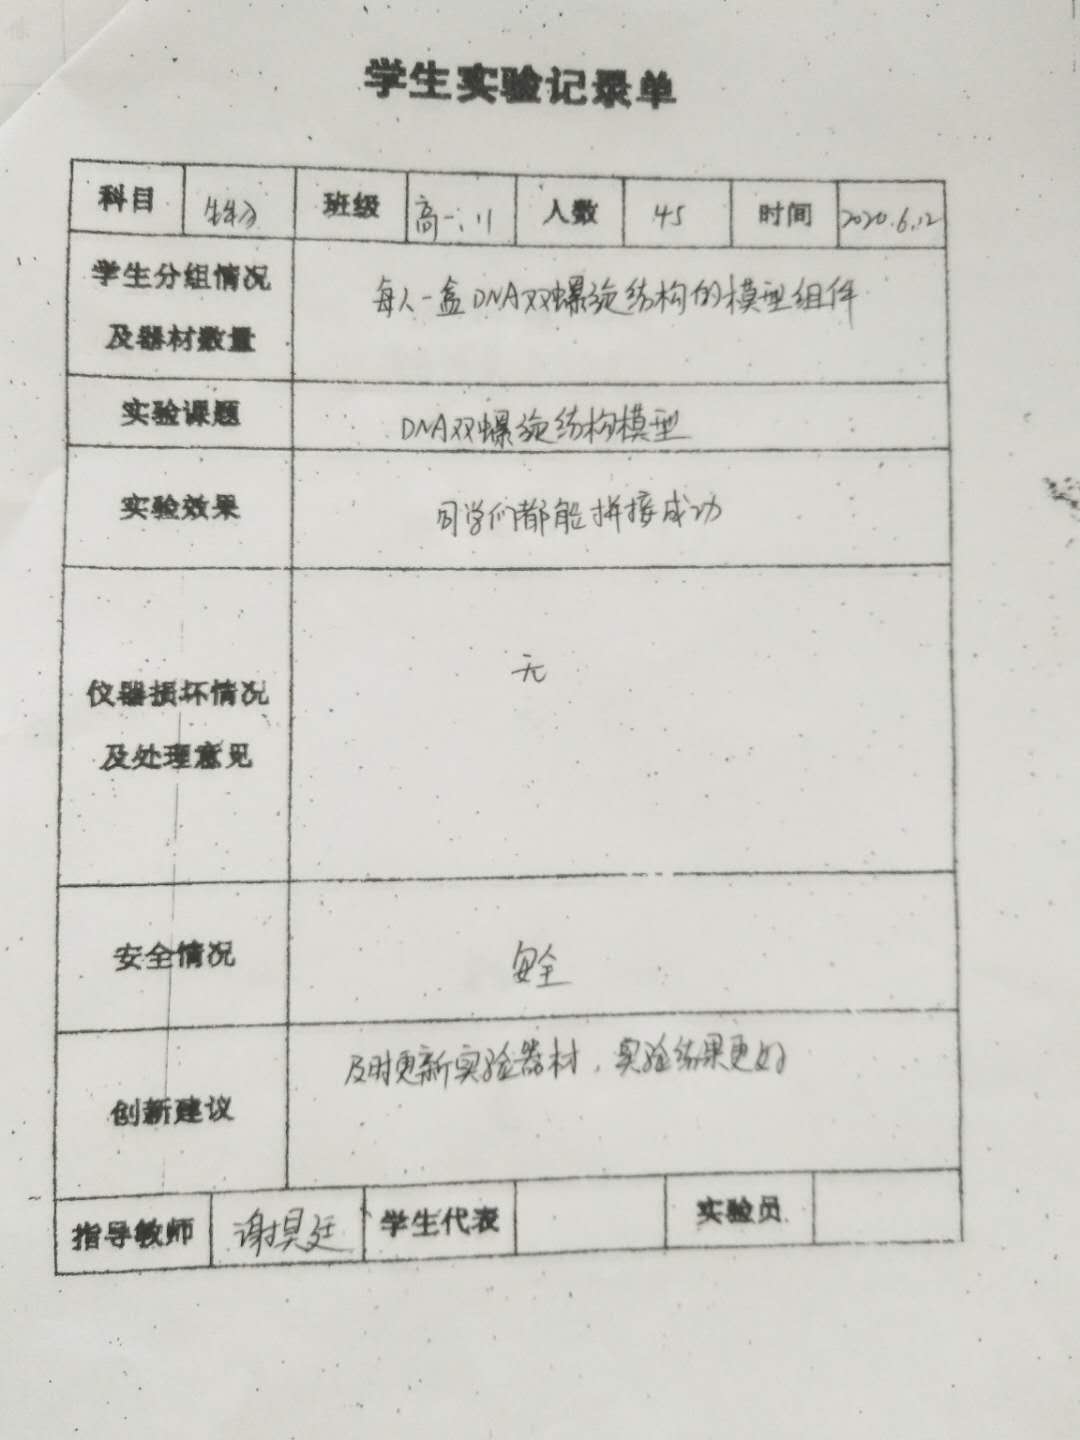 学生实验记录单
科目 生物 班级 高一.11 人数 45 时间 2020.6.12
学生分组情况
及器材数量
每人一盒DNA双螺旋结构的模型组件
实验课题
DNA双螺旋结构模型
实验效果
同学们都能拼接成功
仪器损坏情况
及处理意见
无
安全情况
安全
创新建议
及时更新实验器材，实验结果更好
指导教师 谢 廷 学生代表 实验员